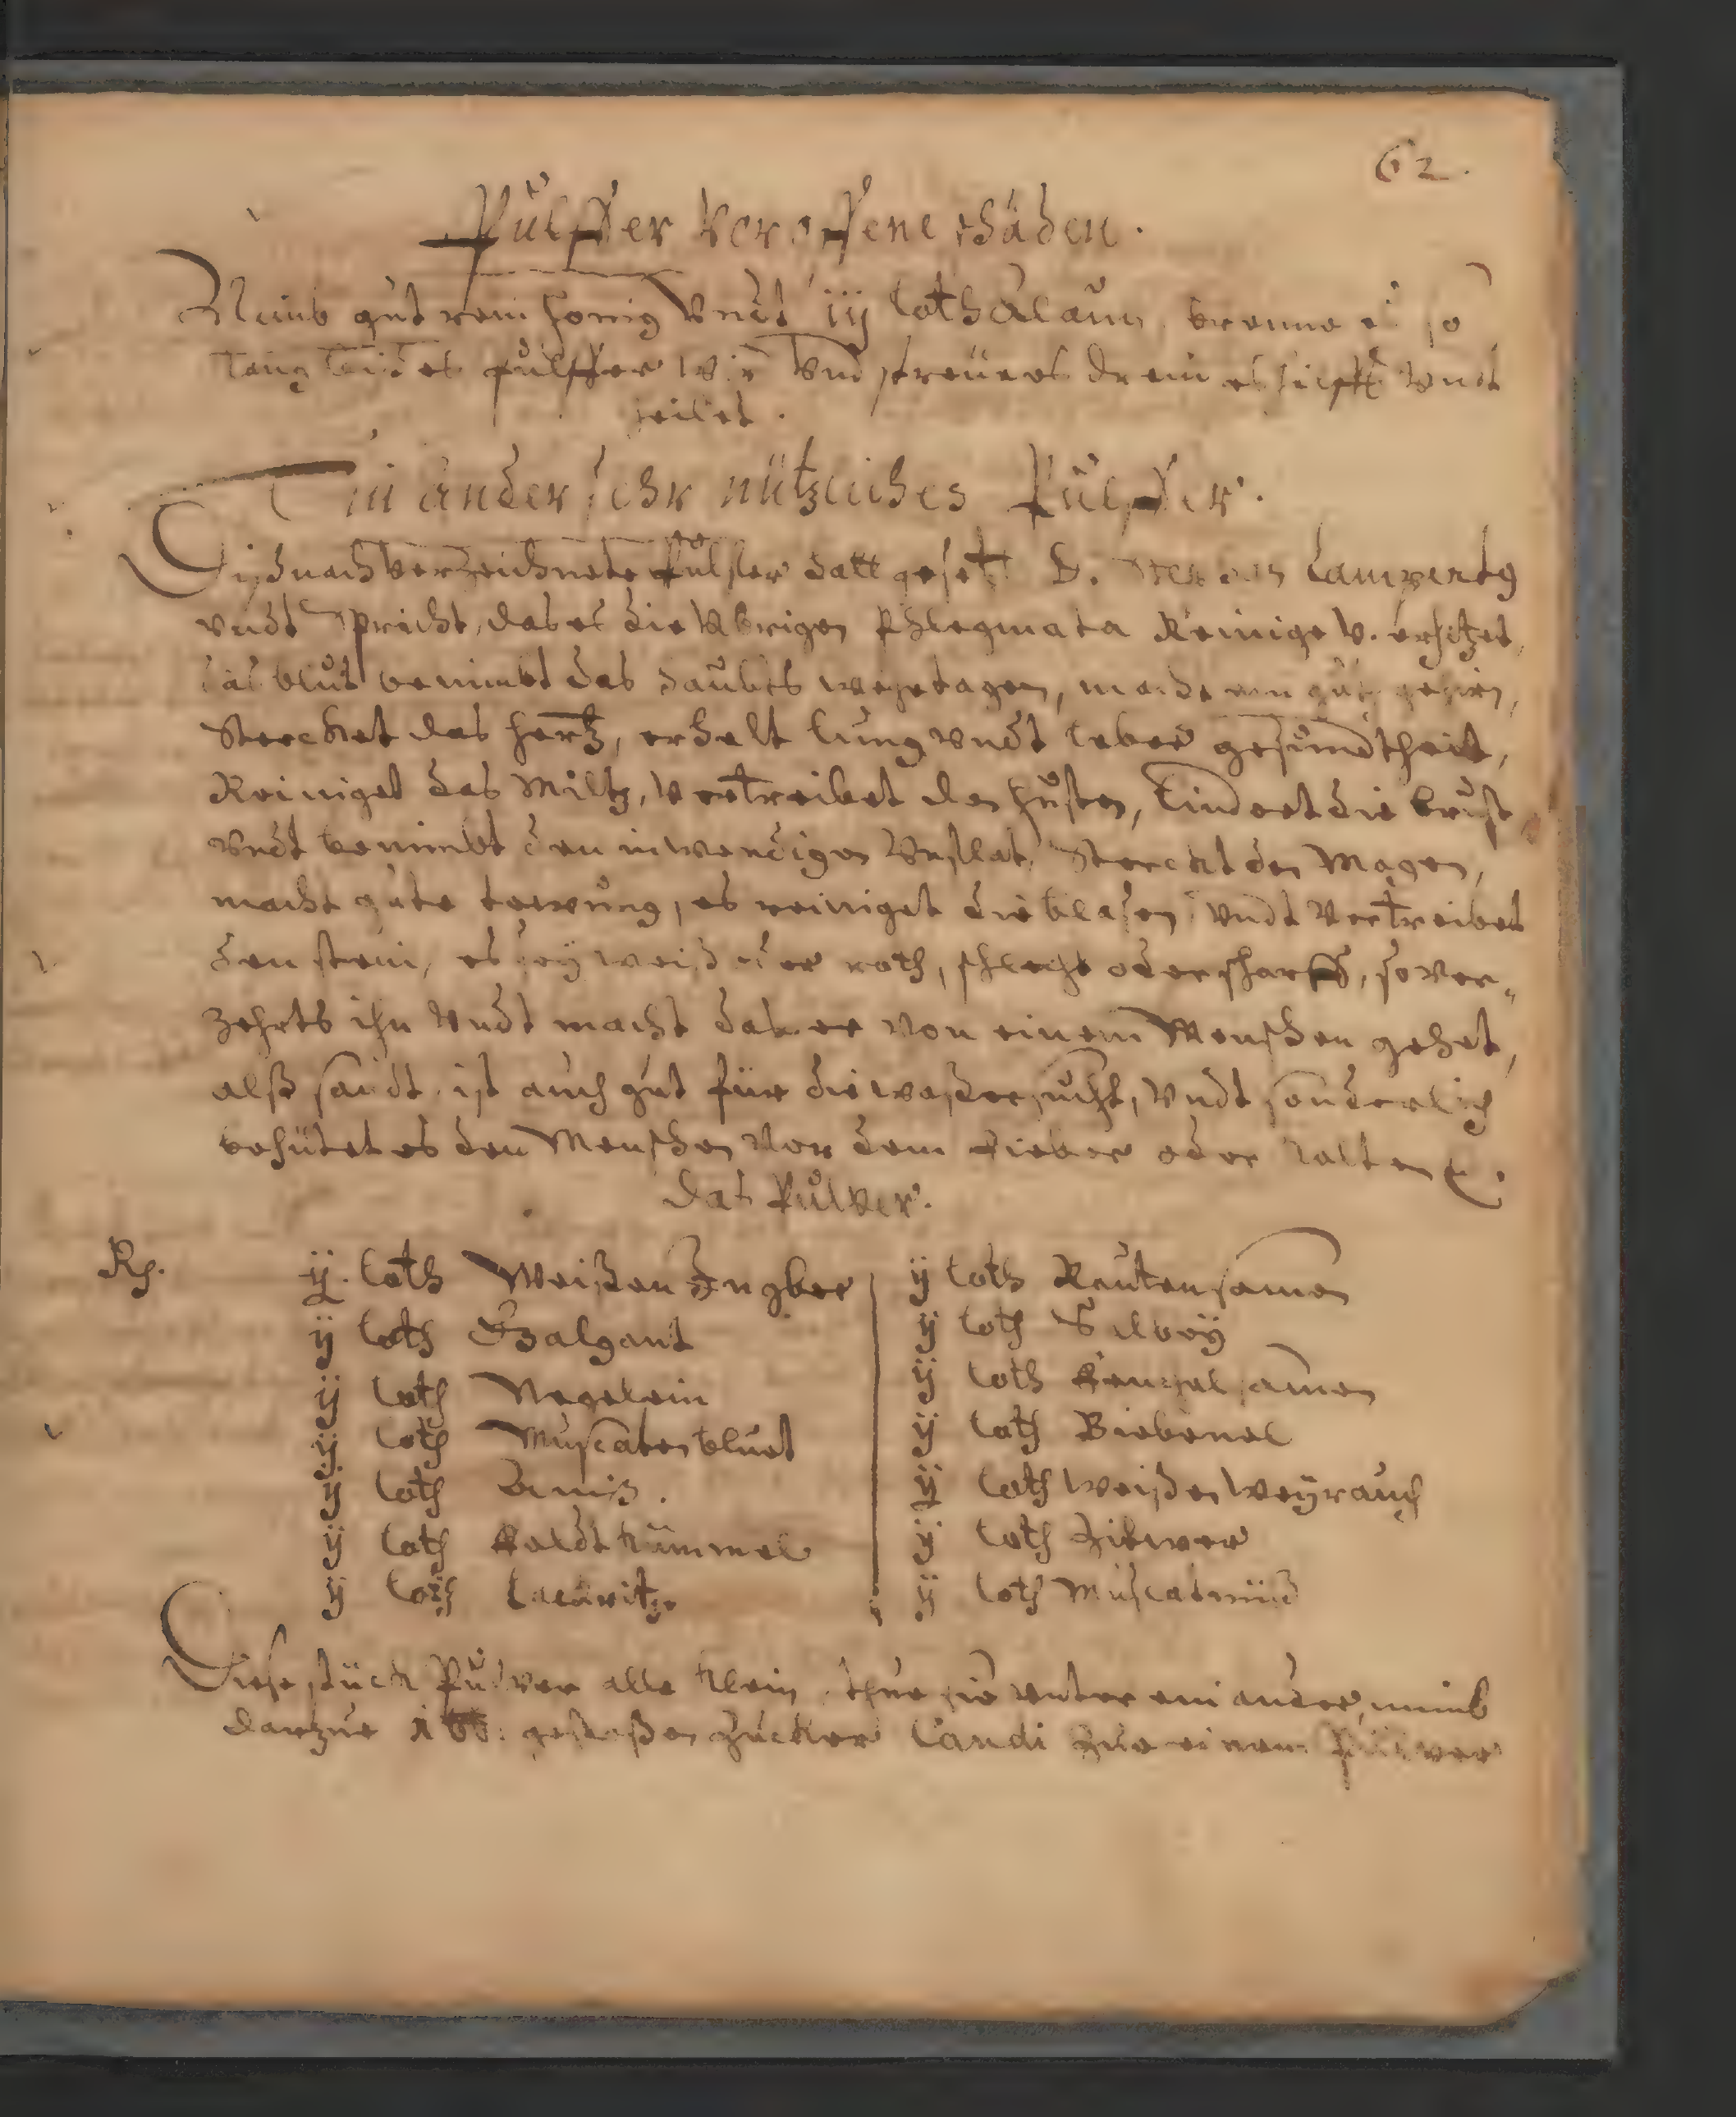 62.
Pülffer Vor offene schäden.
Nimb gut rein honig Vndt iij Loth Alaun, brenne es so
lang biß es pülffer wir Vnd streüe es drein es hilfft Vndt
heilet.
Ein änder sehr nützliches Pülffer.
Diß nach Verzeichnete Pulffer hatt gesetzt D. Lampertg
vndt spricht, das es die Vbrigen Phlegmata Reinige V. erhitzet,
das blut benimbt das haubts wehetagen, macht ein gut gehirn,
Stercket das hertz, erhelt Lung vndt Leber gesundtheit,
Reiniget das Miltz, Vertreibet den husten, Lindert die brust
vndt benimbt den inwendigen Vnflat, Sterckt den Magen,
macht gute tewung, es reiniget die blasen Vndt Vertreibet
den stein, es seÿ weiß oder roth, schlecht oder scharff, so ver-
zehrts ihn Vndt macht das er von einem Menschen gehet,
alß sandt. ist auch gut für die waßersucht, Vndt sonderlich
behütet es den Menschen Vor dem Fieber oder kalten
Das Pulver.
Rp.
ij. Loth Weißen Ingber
ij Loth Galgant
ij Loth Negelein
ij Loth Muscaten bluet
ij Loth Aniß.
ij Loth Feldt kümmel
ij Loth Lacäritz
ij Loth Rautensamen
ij Loth Salbeÿ
ij Loth Fenchel samen
ij Loth Biebenel
ij Loth Weißen Weÿrauch
ij Loth Zitwer
ij Loth Muscatnüß
Diese stück Pulver alle klein, thue sie vnter ein ander, nimb
darzue 1 lb. gestoßen Zucker Candi zue einem Pülver